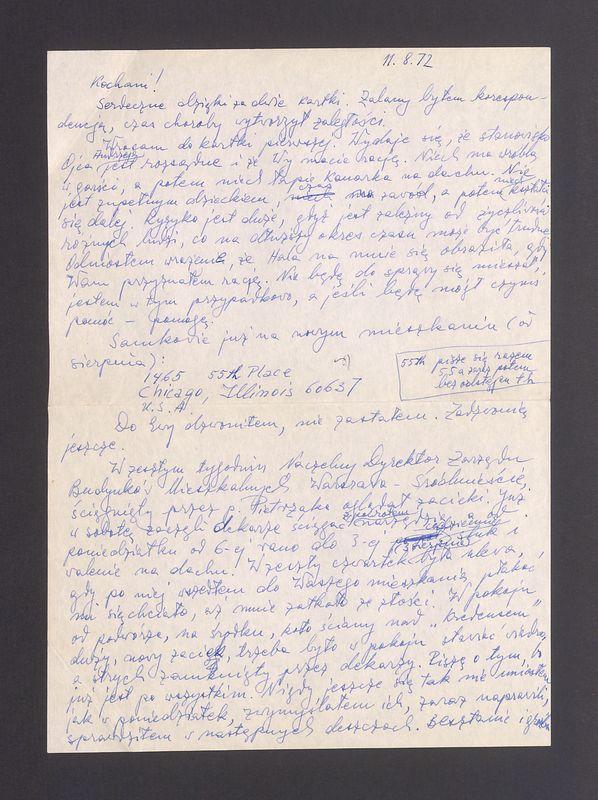 11.8.72
Kochani!
Serdeczne dzięki za dwie kartki. Zalany byłem korespon-
dencją, czas choroby wytworzył zaległości.
Wracam do kartki pierwszej. Wydaje się, że stanowisko
Ojca Andrzeja jest rozsądne i że Wy macie rację. Niech ma wróbla
w garści, a potem niech łapie kanarka na dachu. Nie
jest zupełnym dzieckiem, czas na zawód, a potem niech kształci
się dalej. Ryzyko jest duże, gdyż jest zależny od życzliwości
różnych ludzi, co na dłuższy okres czasu może być trudne.
Odniosłem wrażenie, że Hala na mnie się obraziła, gdy
Wam przyznałem rację. Nie będę do sprawy się mieszał,
jestem w tym przypadkowo, a jeśli będę mógł czymś
pomóc – pomogę.
Samkowie już na nowym mieszkaniu (od
sierpnia):
1465 55th Place
Chicago, Illinois 60637
U.S.A.
55th pisze się razem
55 a zaraz potem
bez odstępu th
Do Ewy dzwoniłem, nie zastałem. Zadzwonię
jeszcze.
W zeszłym tygodniu Naczelny Dyrektor Zarządu
Budynków Mieszkalnych Warszawa-Śródmieście,
ściągnięty przez p. Pietrzaka oglądał zacieki. Już
w sobotę zaczęli dekarze ściągać z powrotem narzędzia, a od
poniedziałku od 6-ej rano do 3-ej codziennie stuk i
walenie na dachu. W zeszły czwartek była ulewa,
gdy po niej wszedłem do Waszego mieszkania, płakać
mi się chciało, aż mnie zatkało ze złości. W pokoju
od podwórza, na środku, koło ściany nad „kredensem"
duży, nowy zaciek, trzeba było w pokoju stawiać wiadra,
a strych zamknięty przez dekarzy. Piszę o tym, bo
już jest po wszystkim. Nigdy jeszcze się tak nie uniosłem
jak w poniedziałek, zwymyślałem ich, zaraz naprawili,
sprawdziłem w następnych deszczach. Besztanie i